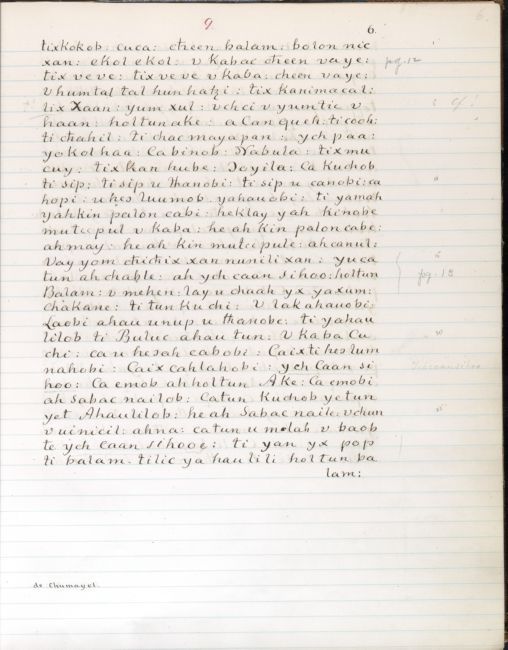 9.
6.
tixkokob: cuca: cheen balam: bolon nic
xan: ekol ekol: v kabac cheen vaye:
tix veve: tix veve v kaba: cheen vaye;
v humtal tal hunhatzi: tix kanimacal:
tix Xaan: yum xul: vchci v yumtic v
haan: holtunake: a Canqueh: ticooh:
ti chahil: ti chac mayapan: ych paa:
yokol haa: Cabinob: Nabula: tixmu
cuy: tix kan hube: Joyila: Ca kuchob
ti sip: ti sip u thanobi: ti sip u canobi: ca
hopi: u hes luumob yahauobi: ti yamah
yahkin palon cabi: heklay yah kinobe
mutecpul v kaba: he ah kin palon cabe:
ah may: he ah kin mutecpule: ahcanul:
vayyom chichix xan nunili xan: yuca
tun ah chable: ah ych caan sihoo: holtun
Balam: v mehen: lay u chaah yx yaxum:
chakane: ti tun kuchi: V lakahauobi:
Laobi ahau unup u thanobe: ti yahau
lilob ti Buluc ahau tun: V kaba Cu
chi: ca u hesah cabobi: Caixti hes lum
nahobi: Caix cahlahobi: ych Caan si
hoo: Ca emob ah holtun Ake: Ca emobi
ah Sabac nailob: Catun kuchob yetun
yet Ahaulilob: he ah Sabac naile: vchun
v uinicil: ahna: catun u molah v baob
te ych caan sihooe: ti yan yx pop
ti balam. tilic ya hau lili holtun ba
lam:
pg. 12
pg. 13
de Chumayel.